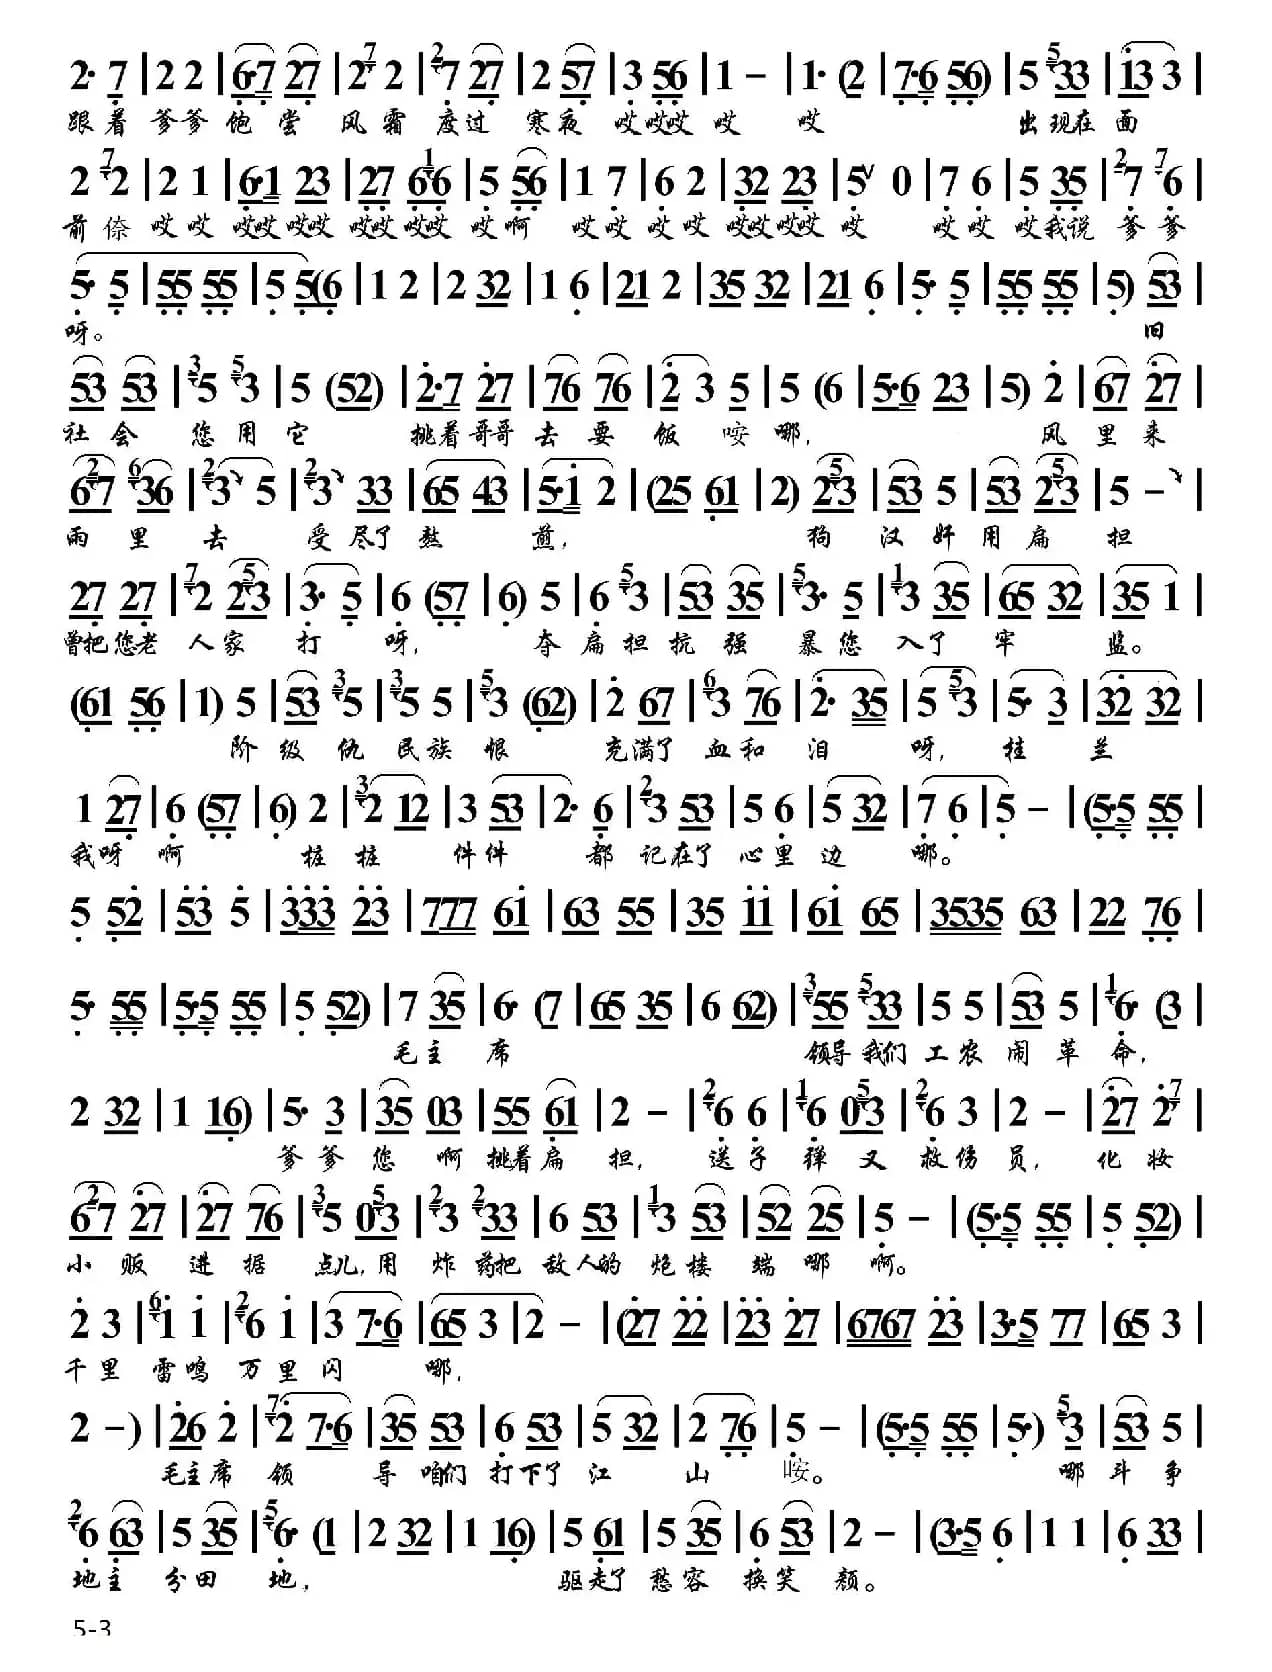 2· 7 | 2 2 | 6·7 27 | 2 7 2 | 2 7 27 | 2 57 | 3 56 | 1 – | 1· (2 | 7·6 56) | 5 5 33 | 13 3 |
跟着爹爹饱尝风霜度过寒夜哎哎哎哎哎出现在面
2 7 2 | 2 1 | 6·1 23 | 27 6 1 6 | 5 56 | 1 7 | 6 2 | 32 23 | 5 0 | 7 6 | 5 35 | 2 7 7 6 |
前傣哎哎哎哎哎哎哎哎哎哎哎啊哎哎哎哎哎哎哎哎哎哎哎哎我说爹爹
5· 5 | 55 55 | 5 5(6 | 1 2 | 2 32 | 1 6 | 21 2 | 35 32 | 21 6 | 5· 5 | 55 55 | 5) 53 |
呀。旧
53 53 | 3 5 5 3 | 5 (52) | 2·7 27 | 76 76 | 2 3 5 | 5 (6 | 5·6 23 | 5) 2 | 67 27 |
社会您用它挑着哥哥去要饭咹哪，风里来
6 2 7 6 36 | 2 3 5 | 2 3 33 | 65 43 | 5·1 2 | (25 61 | 2) 2 5 3 | 53 5 | 53 2 5 3 | 5 – |
雨里去受尽了熬煎，狗汉奸用扁担
27 27 | 7 2 2 5 3 | 3· 5 | 6 (57 | 6) 5 | 6 5 3 | 53 35 | 5 3· 5 | 1 3 35 | 65 32 | 35 1 |
曾把您老人家打呀，夺扁担抗强暴您入了牢监。
(61 56 | 1) 5 | 53 3 5 | 3 5 5 | 5 3 (62) | 2 67 | 6 3 76 | 2· 35 | 5 5 3 | 5· 3 | 32 32 |
阶级仇民族恨充满了血和泪呀，桂兰
1 27 | 6 (57 | 6) 2 | 3 2 12 | 3 53 | 2· 6 | 2 3 53 | 5 6 | 5 32 | 7 6 | 5 – | (5·5 55 |
我呀啊桩桩件件都记在了心里边哪。
5 52 | 53 5 | 333 23 | 777 61 | 63 55 | 35 11 | 61 65 | 3535 63 | 22 76 |
5· 55 | 5·5 55 | 5 52) | 7 35 | 6· (7 | 65 35 | 6 62) | 3 55 5 33 | 5 5 | 53 5 | 1 6· (3 |
毛主席领导我们工农闹革命，
2 32 | 1 16) | 5· 3 | 35 03 | 55 61 | 2 – | 2 6 6 | 1 6 0 5 3 | 2 6 3 | 2 – | 27 2 7 |
爹爹您啊挑着扁担，送子弹又救伤员，化妆
6 2 7 27 | 27 76 | 3 5 0 5 3 | 2 3 2 33 | 6 53 | 1 3 53 | 52 25 | 5 – | (5·5 55 | 5 52) |
小贩进据点儿，用炸药把敌人的炮楼端哪啊。
2 3 | 6 1 1 | 2 6 1 | 3 7·6 | 65 3 | 2 – | (27 22 | 23 27 | 6767 23 | 3·5 77 | 65 3 |
千里雷鸣万里闪哪，
2 –) | 26 2 | 7 2 7·6 | 35 53 | 6 53 | 5 32 | 2 76 | 5 – | (5·5 55 | 5·) 2 3 | 53 5 |
毛主席领导咱们打下了江山咹。哪斗争
2 6 63 | 5 35 | 5 6· (1 | 2 32 | 1 16) | 5 61 | 5 35 | 6 53 | 2 – | (3·5 6 | 1 1 | 6 33 |
地主分田地，驱走了愁容换笑颜。
5-3